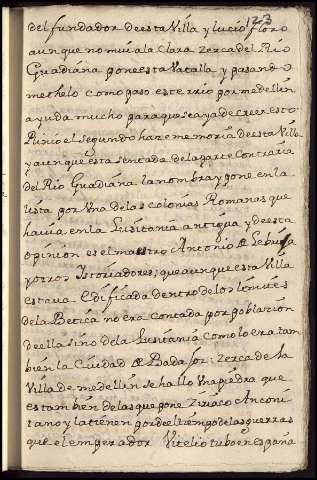 123
del fundador de esta Villa y lucio floro
aunque no mui a la Clara zerca del Rio
Guadiana pone esta Vatalla y pasando
methelo como paso este rrio por medellin
ayuda mucho para que se aya de creer esto
Plinio el segundo haze memoria de esta Villa
y aunque esta sentada de la parte Contraria
del Rio Guadiana la nombra y pone en la
lista por Vna de las colonias Romanas que
havia en la Lusitania antigua, y de esta
opinion es el maestro Antonio de Lebrija
y otros Ystoriadores; que aunque esta Villa
estava Edificada dentro de los limites
de la Betica no era Contada por poblacion
de ella sino de la Lusitania como lo era tam
bien la Ciudad de Badajoz: zerca de la
Villa de medellin se hallo Vna piedra que
es tambien de las que pone Ziriaco Anconi
tano y la tienen por de el tiempo de las guerras
que el emperador Vitelio tubo en españa